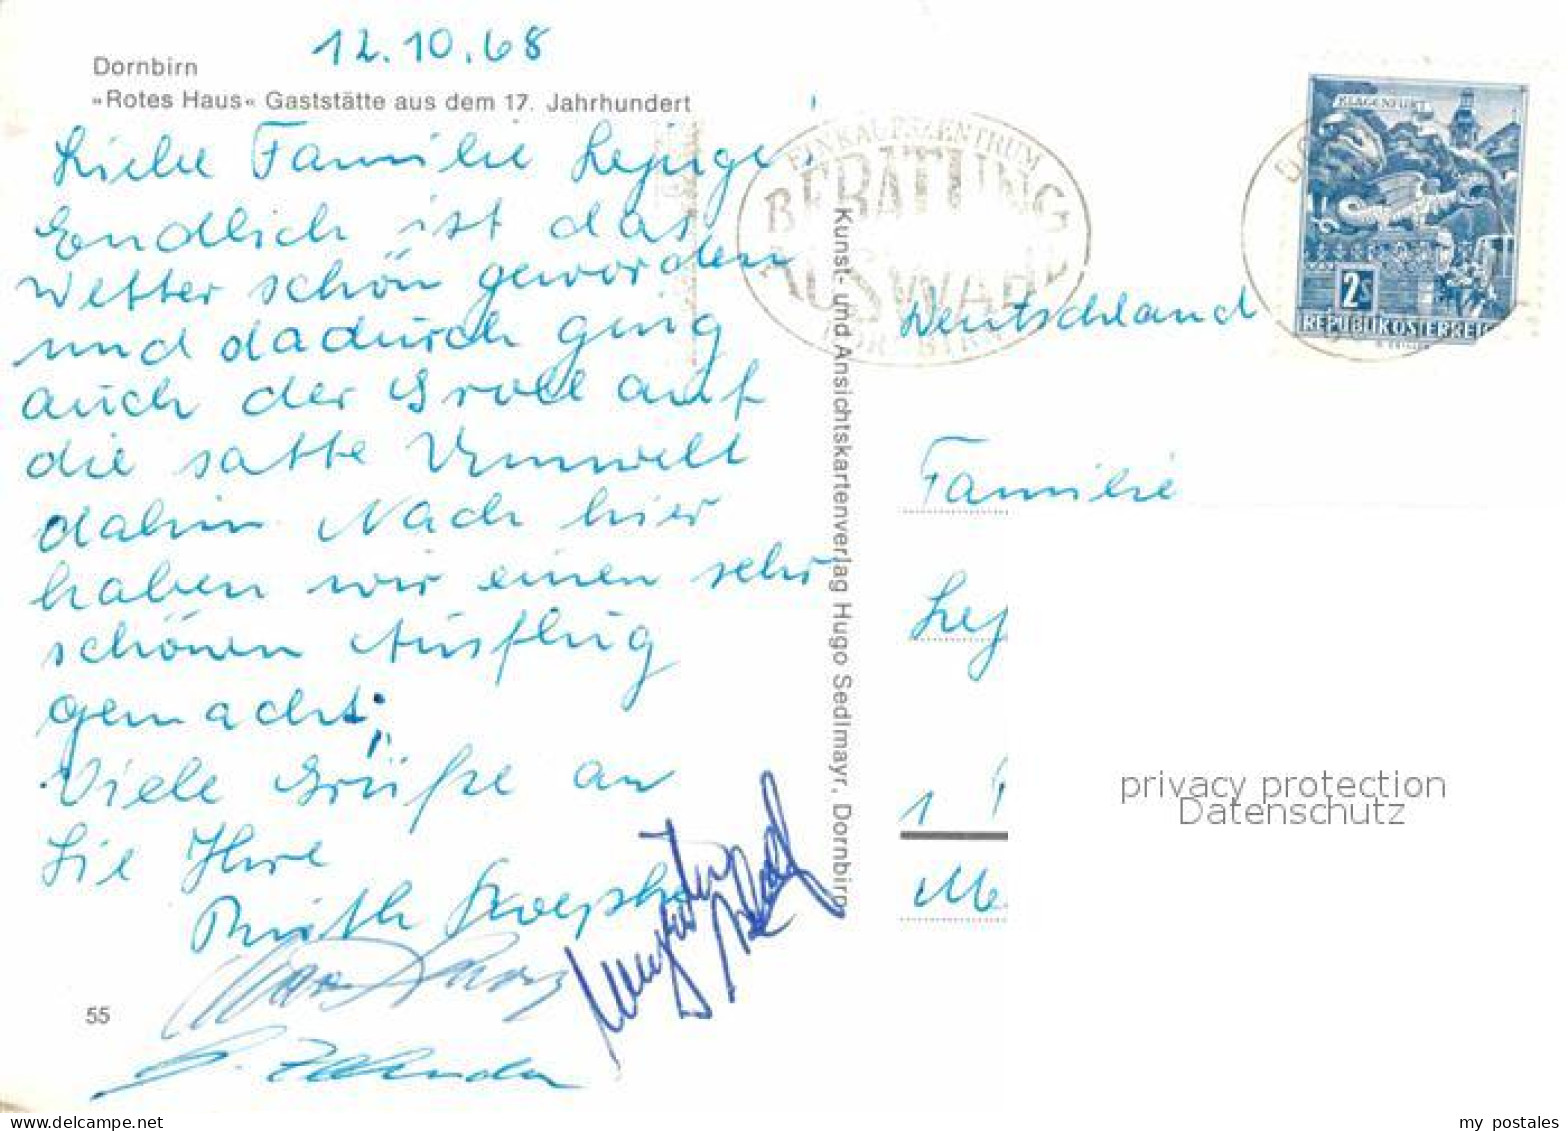 12.10.68
Dornbirn
»Rotes Haus« Gaststätte aus dem 17. Jahrhundert
Liebe Familie
Endlich ist das
Wetter schön geworden
und dadurch ging
auch der Groll auf
die satte Umwelt
dahin Nach hier
haben wir einen sehr
schönen Ausflug
gemacht.
Viele Grüße an
Sie Ihre
Ruth
55
Kunst- und Ansichtskartenverlag Hugo Sedlmayr, Dornbirn
EINKAUFSZENTRUM
BERATUNG
AUSWAHL
DORNBIRN
KLAGENFURT
2S
REPUBLIK ÖSTERREICH
Deutschland
Familie
Lej
1
Me
privacy protection
Datenschutz
my postales